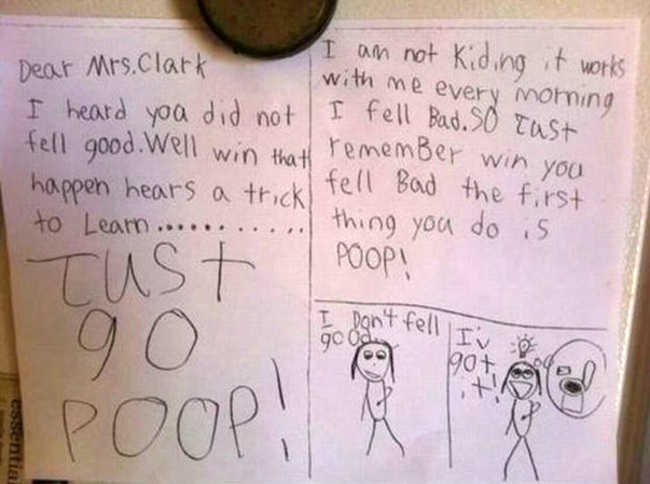 Dear Mrs.Clark
I heard you did not
fell good.Well win that
happen hears a trick
to Learn............
JUST
go
POOP!
I am not Kiding it works
with me every morning
I fell Bad.SO Just
rememBer win you
fell Bad the first
thing you do is
POOP!
I Don't fell
good..
I'v
got
it!
essential